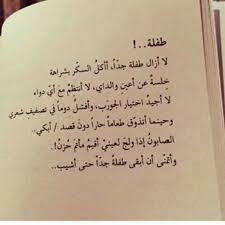 طفلة..!
لا أزال طفلة جدّاً، أأكلُ السكّر بشراهة
خلسة عن أعين والداي، لا أنتظمُ مع أيّ دواء
لا أجيدُ اختيار الجورَب، وأفشلُ دوماً في تصفيف شعري
وحينما أتذوّق طعاماً حاراً دونَ قصد / أبكي..
الصابونُ إذا ولجَ لعينيّ أقيمُ مأتمَ حُزن!..
وأتمنّى أن أبقى طفلة جدّاً حتى أشيب..